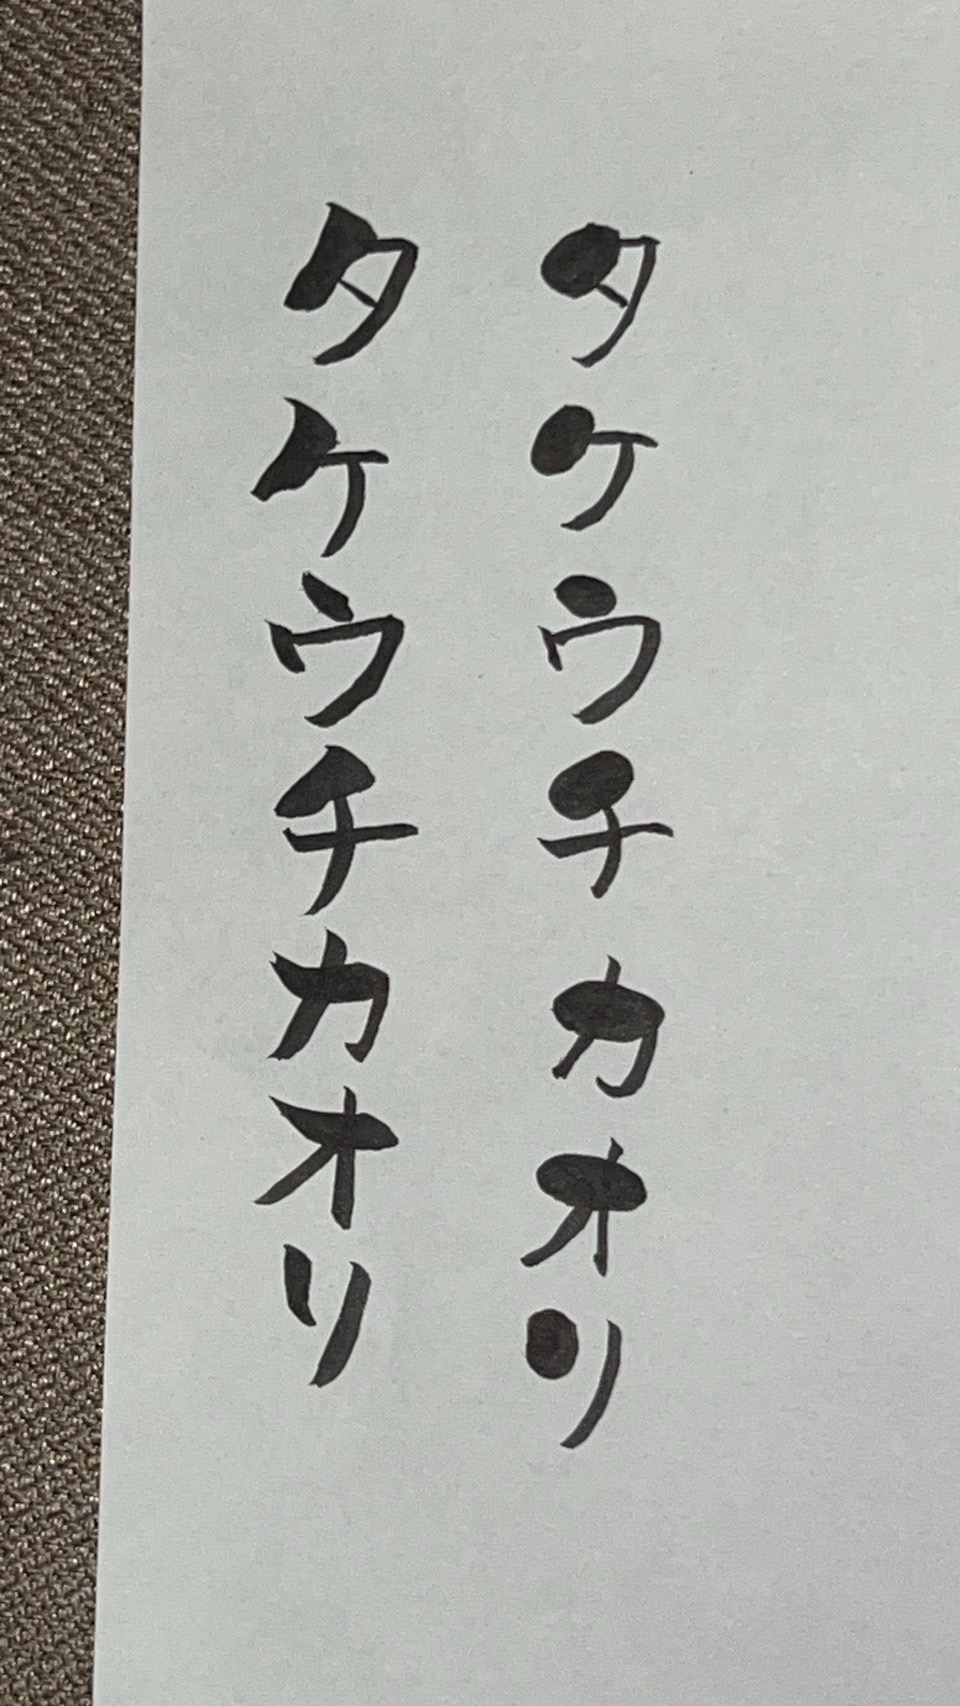 タケウチカオリ
タケウチカオリ